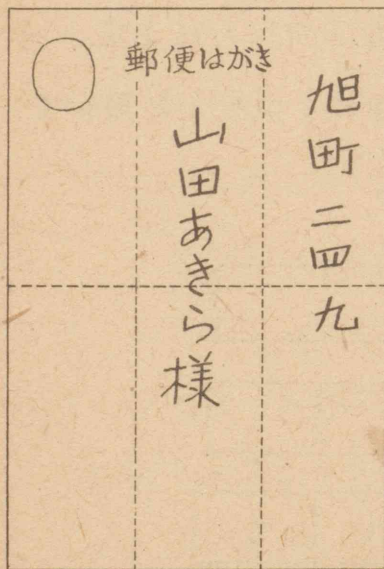 郵便はがき
旭町二四九
山田あきら様